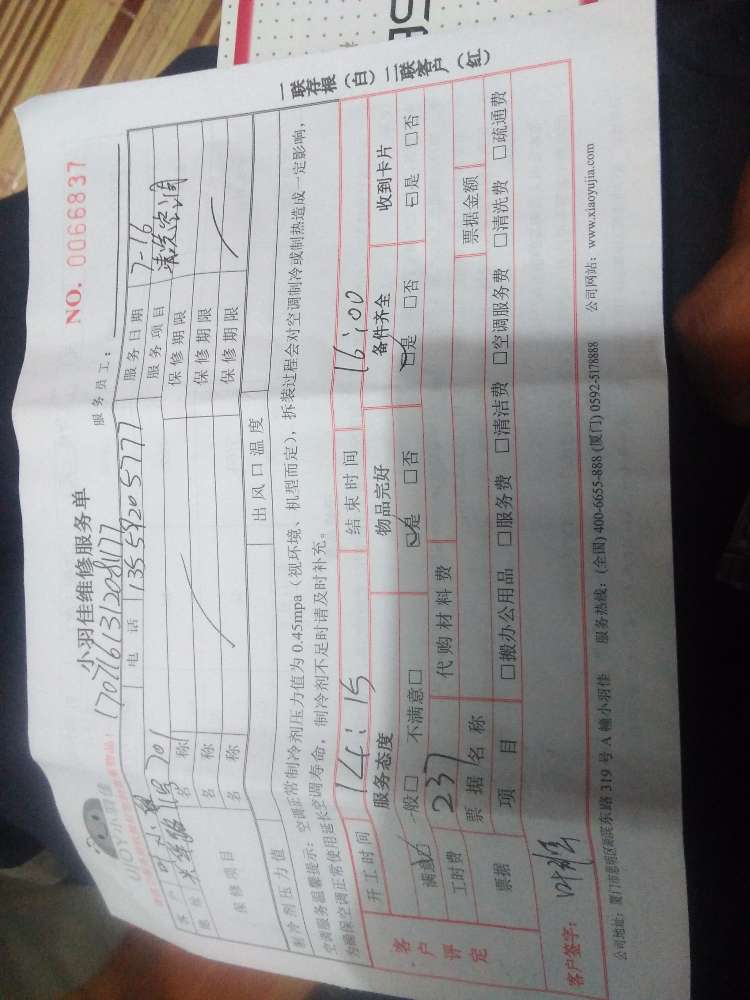 小羽佳维修服务单
NO. 0066837
UJOY小羽佳
1707161312081177
服务员工：
客户
电话 13559205777 服务日期 7-16
地址 701 服务项目 清洗空调
保修项目
名称 保修期限
名称 保修期限
名称 保修期限
制冷剂压力值 出风口温度
空调服务温馨提示：空调正常制冷剂压力值为 0.45mpa（视环境、机型而定），拆装过程会对空调制冷或制热造成一定影响，
为确保空调正常使用延长空调寿命，制冷剂不足时请及时补充。
开工时间 14:15 结束时间 16:00
客户评定
服务态度 物品完好 备件齐全 收到卡片
满意□ 一般□ 不满意□ □是 □否 □是 □否 □是 □否
工时费 237 代购材料费
票据 票据名称 票据金额
项目 □搬办公用品 □服务费 □清洁费 □空调服务费 □清洗费 □疏通费
客户签字：
公司地址：厦门市思明区湖滨东路 319 号 A 幢小羽佳 服务热线：(全国) 400-6655-888 (厦门) 0592-5178888 公司网站：www.xiaoyujia.com
一联存根（白）二联客户（红）